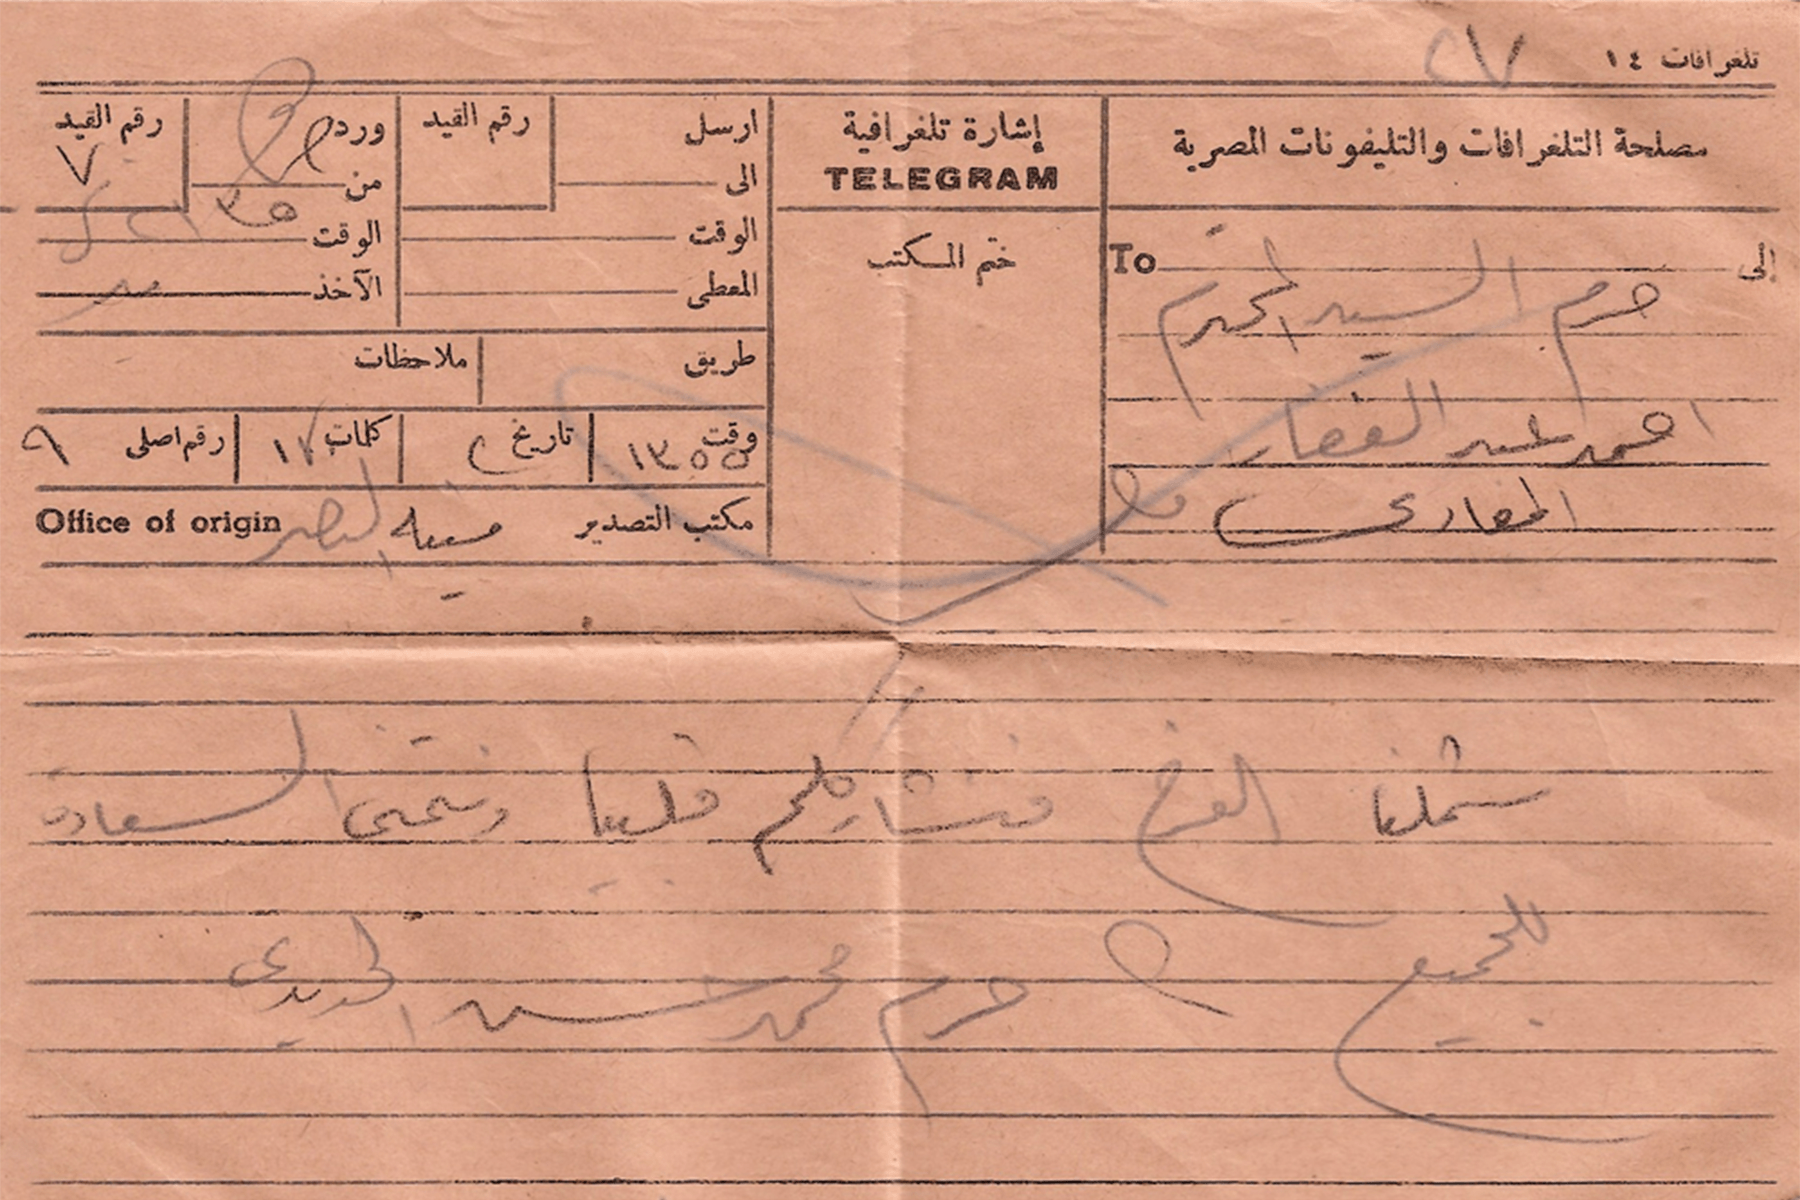 تلغرافات ١٤
٢٧
مصلحة التلغرافات والتليفونات المصرية
إشارة تلغرافية
TELEGRAM
ختم المكتب
ارسل
رقم القيد
الى
الوقت
المعطى
ورد
رقم القيد
٧
من
الوقت
الآخذ
طريق
ملاحظات
وقت ١٣٥٥
تاريخ ٢
كلمات ١٧
رقم اصلى ٩
مكتب التصدير
Office of origin
إلى
To
حرم السيد المحترم
احمد عبد الغفار
شملنا الفرح فنشاركم قلبيا ونتمنى السعادة
للجميع
حرم محمد حسين الحديدى